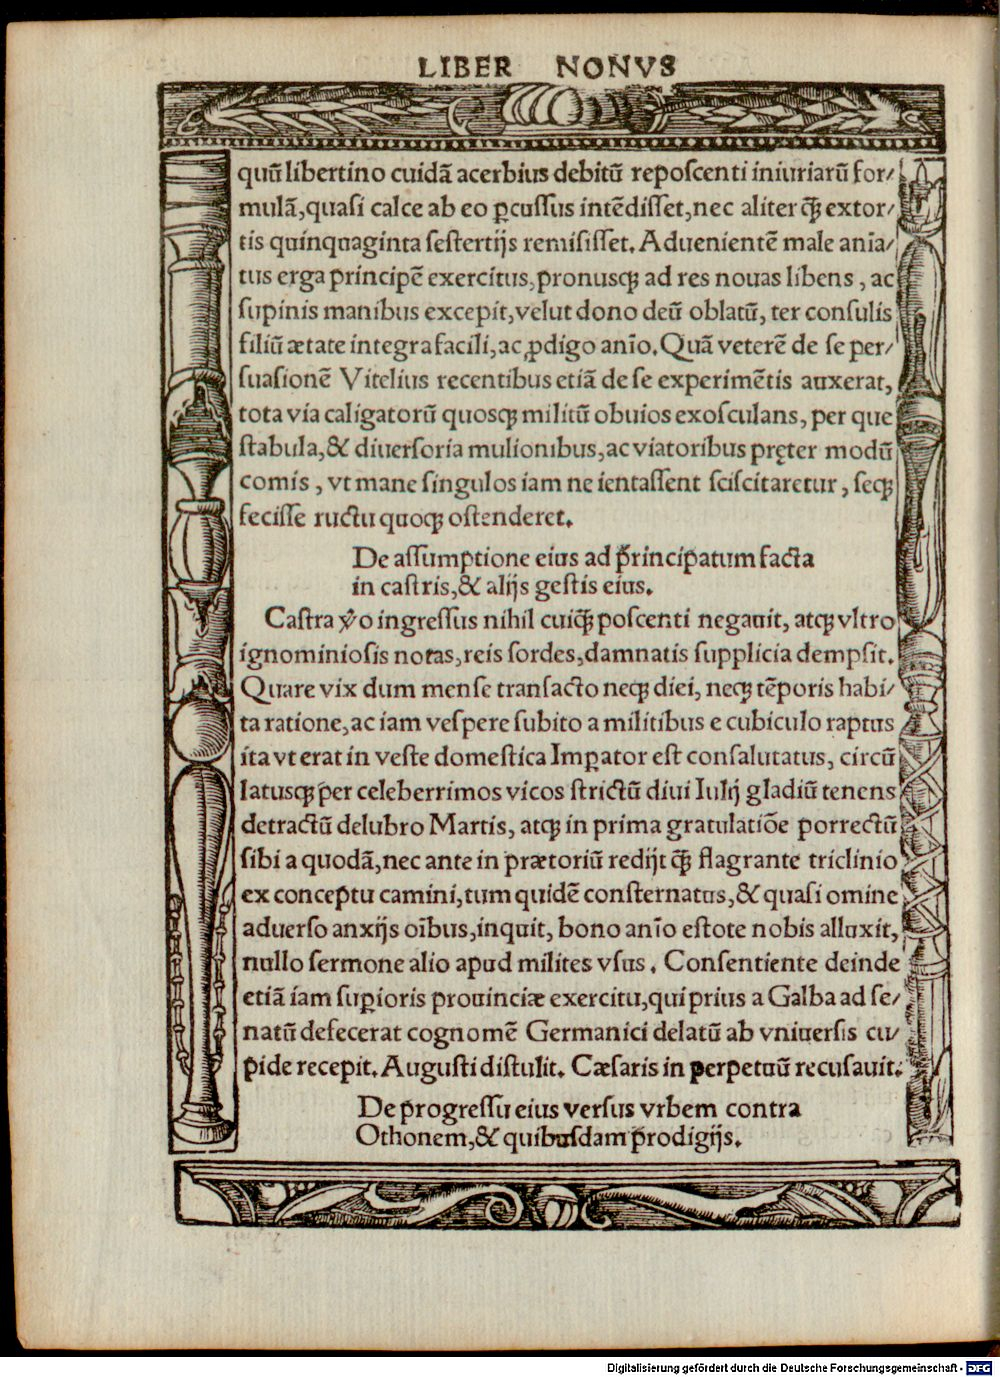 LIBER NONVS
quū libertino cuidā acerbius debitū reposcenti iniuriarū for/
mulā, quasi calce ab eo ꝑcussus intēdisset, nec aliter ꝙ̄ extor/
tis quinquaginta sestertijs remisisset. Aduenientē male ania/
tus erga principē exercitus, pronusqꝫ ad res nouas libens, ac
supinis manibus excepit, velut dono deū oblatū, ter consulis
filiū ætate integra facili, ac ꝓdigo anīo. Quā veterē de se per/
suasionē Vitelius recentibus etiā de se experimētis auxerat,
tota via caligatorū quosqꝫ militū obuios exosculans, per que
stabula, & diuersoria mulionibus, ac viatoribus pręter modū
comis, vt mane singulos iam ne ientassent sciscitaretur, seqꝫ
fecisse ructu quoqꝫ ostenderet.
De assumptione eius ad principatum facta
in castris, & alijs gestis eius.
Castra ṽo ingressus nihil cuiꝙ̄ poscenti negauit, atqꝫ vltro
ignominiosis notas, reis sordes, damnatis supplicia dempsit.
Quare vix dum mense transacto neqꝫ diei, neqꝫ tēporis habi/
ta ratione, ac iam vespere subito a militibus e cubiculo raptus
ita vt erat in veste domestica Imꝑator est consalutatus, circū
latusqꝫ per celeberrimos vicos strictū diui Iulij gladiū tenens
detractū delubro Martis, atqꝫ in prima gratulatiōe porrectū
sibi a quodā, nec ante in prætoriū redijt ꝙ̄ flagrante triclinio
ex conceptu camini, tum quidē consternatus, & quasi omine
aduerso anxijs oībus, inquit, bono anīo estote nobis alluxit,
nullo sermone alio apud milites vsus. Consentiente deinde
etiā iam suꝑioris prouinciæ exercitu, qui prius a Galba ad se/
natū defecerat cognomē Germanici delatū ab vniuersis cu/
pide recepit. Augusti distulit. Cæsaris in perpetuū recusauit.
De progressu eius versus vrbem contra
Othonem, & quibusdam prodigijs.
Digitalisierung gefördert durch die Deutsche Forschungsgemeinschaft - DFG